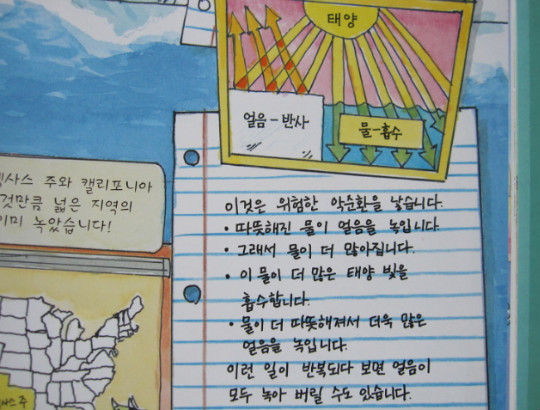 태양
얼음-반사
물-흡수
사스 주와 캘리포니아
것만큼 넓은 지역의
이미 녹았습니다!
이것은 위험한 악순환을 낳습니다.
• 따뜻해진 물이 얼음을 녹입니다.
• 그래서 물이 더 많아집니다.
• 이 물이 더 많은 태양 빛을
흡수합니다.
• 물이 더 따뜻해져서 더욱 많은
얼음을 녹입니다.
이런 일이 반복되다 보면 얼음이
모두 녹아 버릴 수도 있습니다.
사스 주